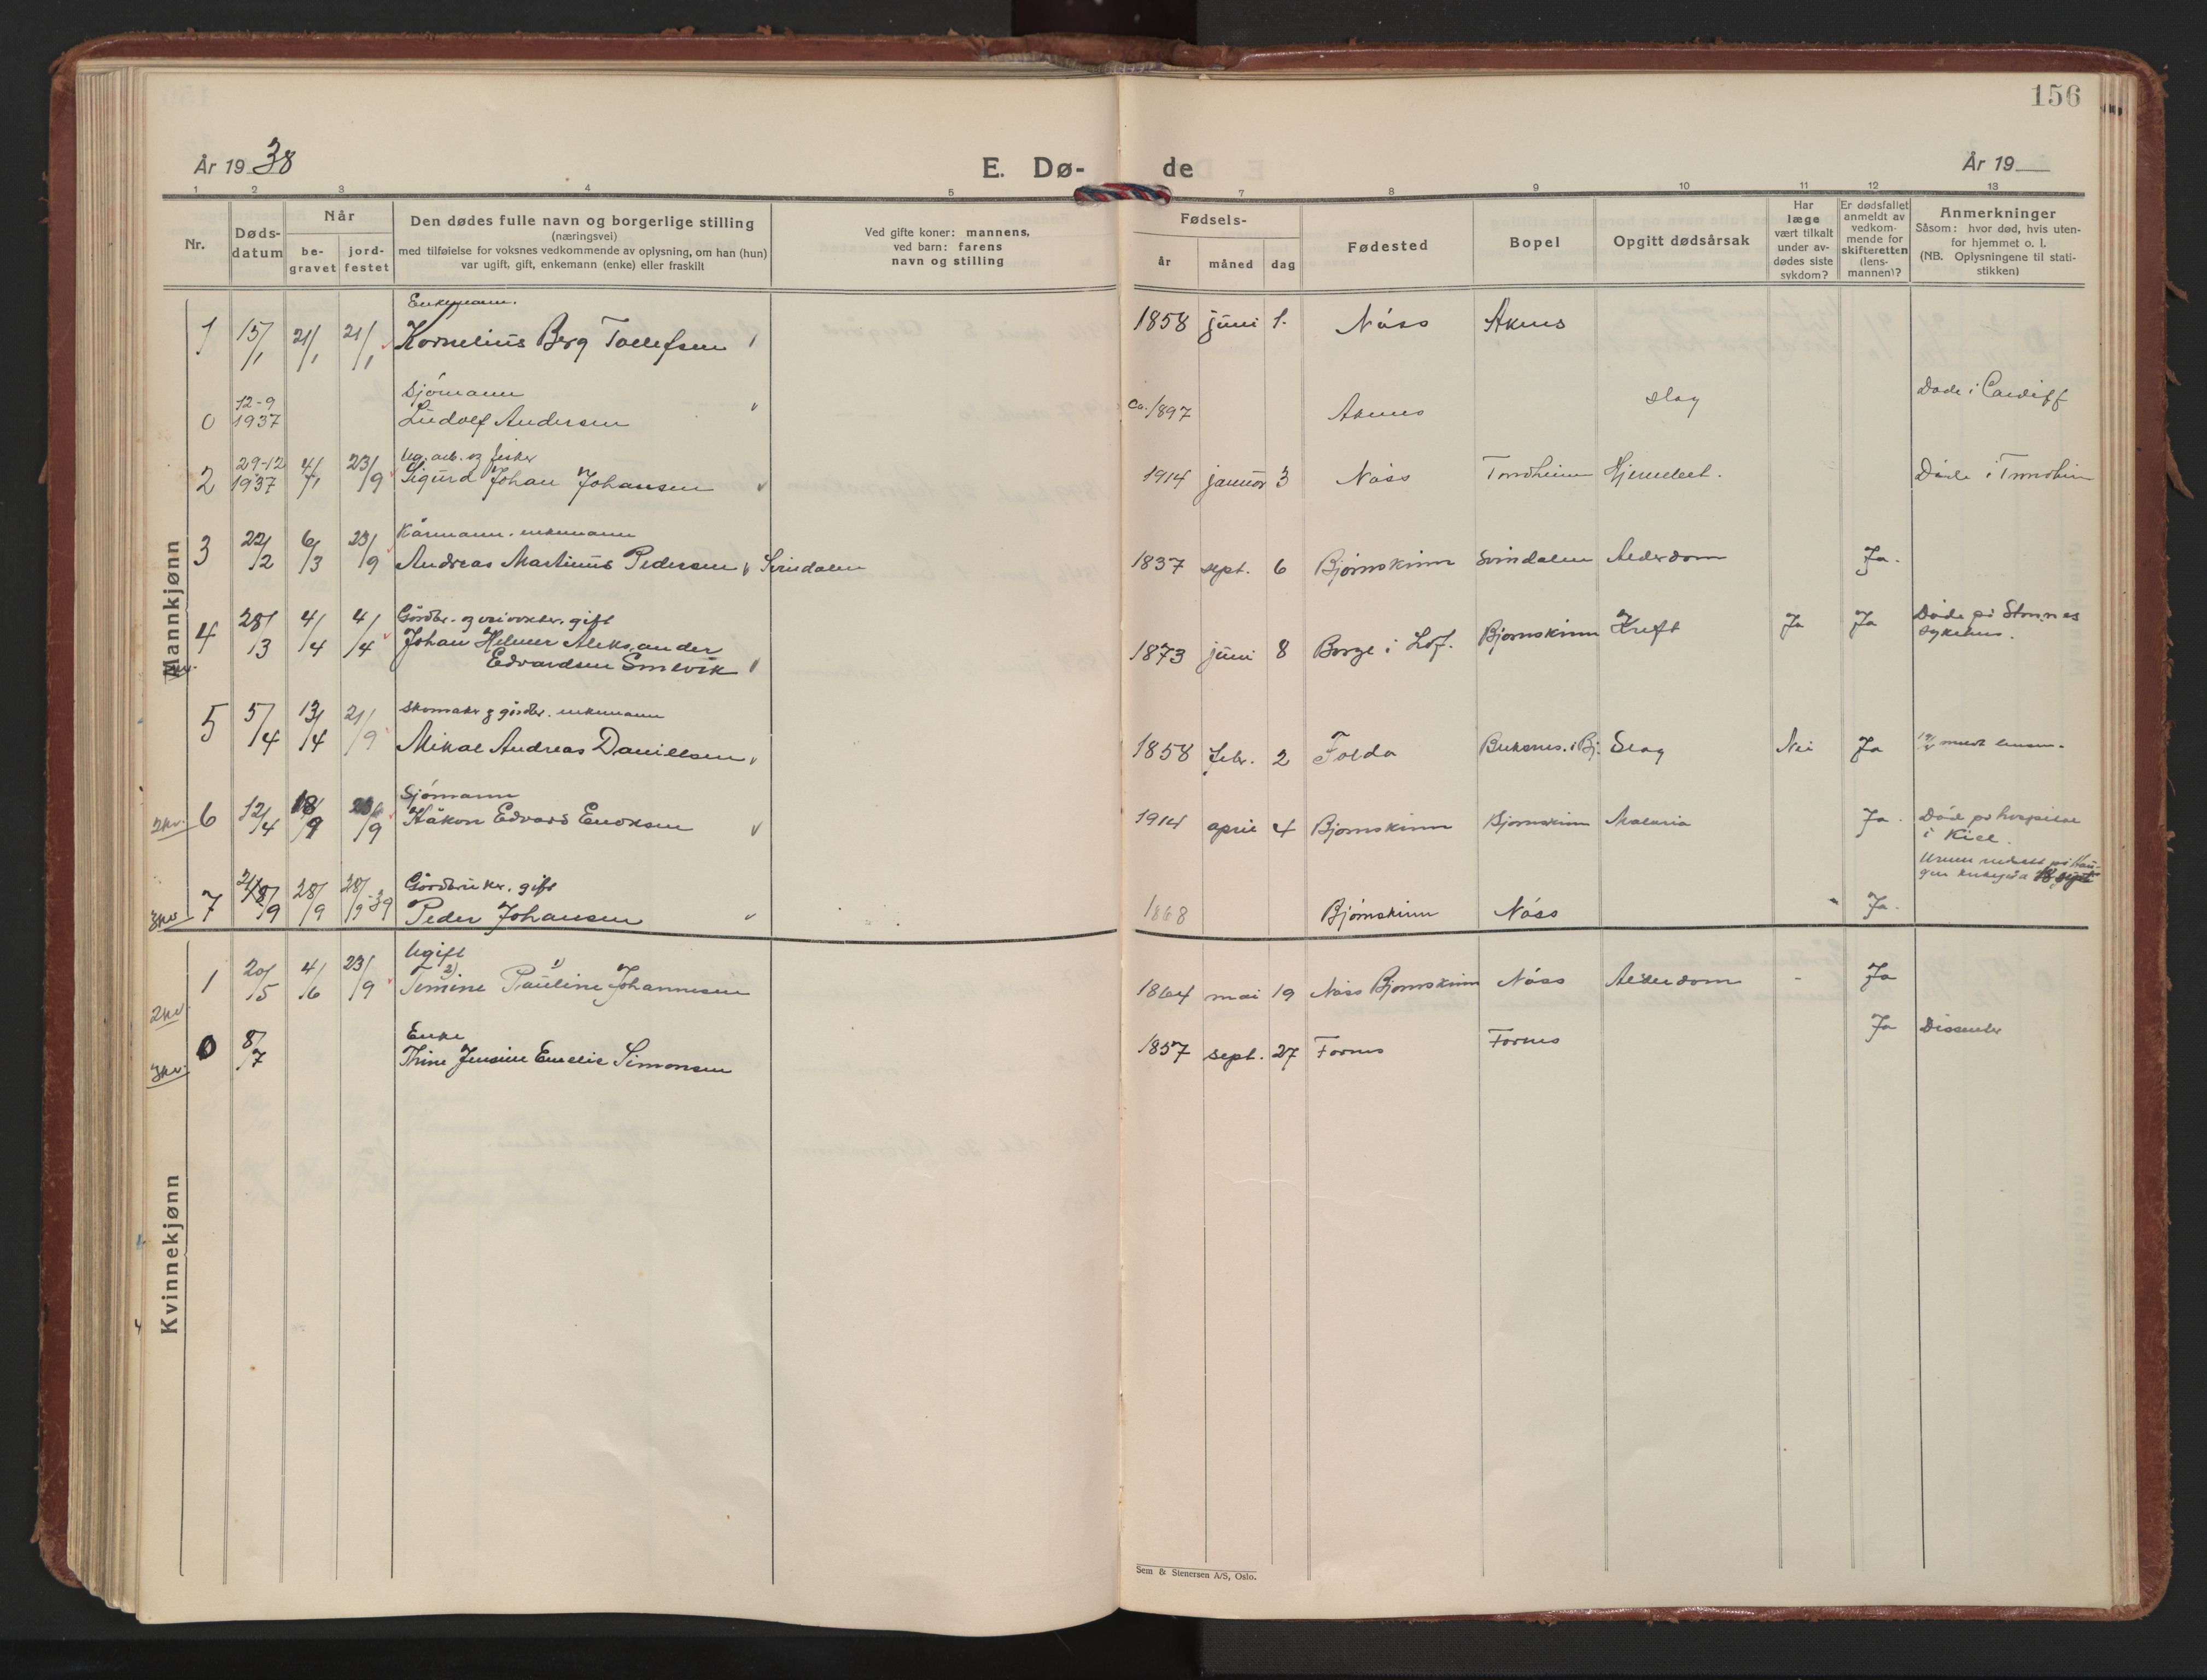 156
År 19 38
E. Dø-
de
År 19
1 2 3 4 5 7 8 9 10 11 12 13
Nr.
Døds-
datum
Når
be-
gravet
jord-
festet
Den dødes fulle navn og borgerlige stilling
(næringsvei)
med tilføielse for voksnes vedkommende av oplysning, om han (hun)
var ugift, gift, enkemann (enke) eller fraskilt
Ved gifte koner: mannens,
ved barn: farens
navn og stilling
Fødsels-
år
måned
dag
Fødested
Bopel
Opgitt dødsårsak
Har
læge
vært tilkalt
under av-
dødes siste
sykdom?
Er dødsfallet
anmeldt av
vedkom-
mende for
skifteretten
(lens-
mannen)?
Anmerkninger
Såsom: hvor død, hvis uten-
for hjemmet o. l.
(NB. Oplysningene til stati-
stikken)
Mannkjønn
Enkemann.
1 15/1 21/1 21/1 Kornelius Berg Tollefsen 1858 juni 1. Nåss Åknes
Sjømann
0 12-9 1937 Ludolf Andersen ca. 1897 Åknes slag Døde i Cardiff
Ug. arb. og fisker
2 29-12 1937 4/1 23/9 Sigurd Johan Johansen 1914 januar 3 Nåss Trondheim Hjernebet. Døde i Trondheim
Kårmann. enkemann
3 22/2 6/3 23/9 Andreas Martinus Pedersen Svindalen 1837 sept. 6 Bjørnskinn Svindalen Alderdom Ja.
Gårdbr. og gift
4 28/3 4/4 4/4 Johan Helmer Aleksander
Edvardsen Smevik 1873 juni 8 Borge i Lof. Bjørnskinn Kreft Ja Ja Døde på Stonnes
sykehus.
Skomaker og gårdbr. enkemann
5 5/4 13/4 21/9 Mikal Andreas Daniellsen 1858 febr. 2 Folda Buksnes. i Bj. Slag Nei Ja
Sjømann
2kv. 6 12/4 18/9 /9 Håkon Edvard Enoksen 1914 april 4 Bjørnskinn Bjørnskinn Malaria Ja. Død på hospital
i Kiel.
Urnen nedsatt på
Gårdbruker. gift
3kv 7 /9 28/9 28/9-39 Peder Johansen 1868 Bjørnskinn Nåss Ja.
Kvinnekjønn
Ugift
2kv. 1 20/5 4/6 23/9 Temine 2) Pauline 1) Johannesen 1864 mai 19 Nåss Bjørnskinn Nåss Alderdom - Ja
Enke
3kv. 0 8/7 Thine Jensine Emelie Simonsen 1857 sept. 27 Fornes Fornes Ja Dissenter
Sem & Stenersen A/S, Oslo.